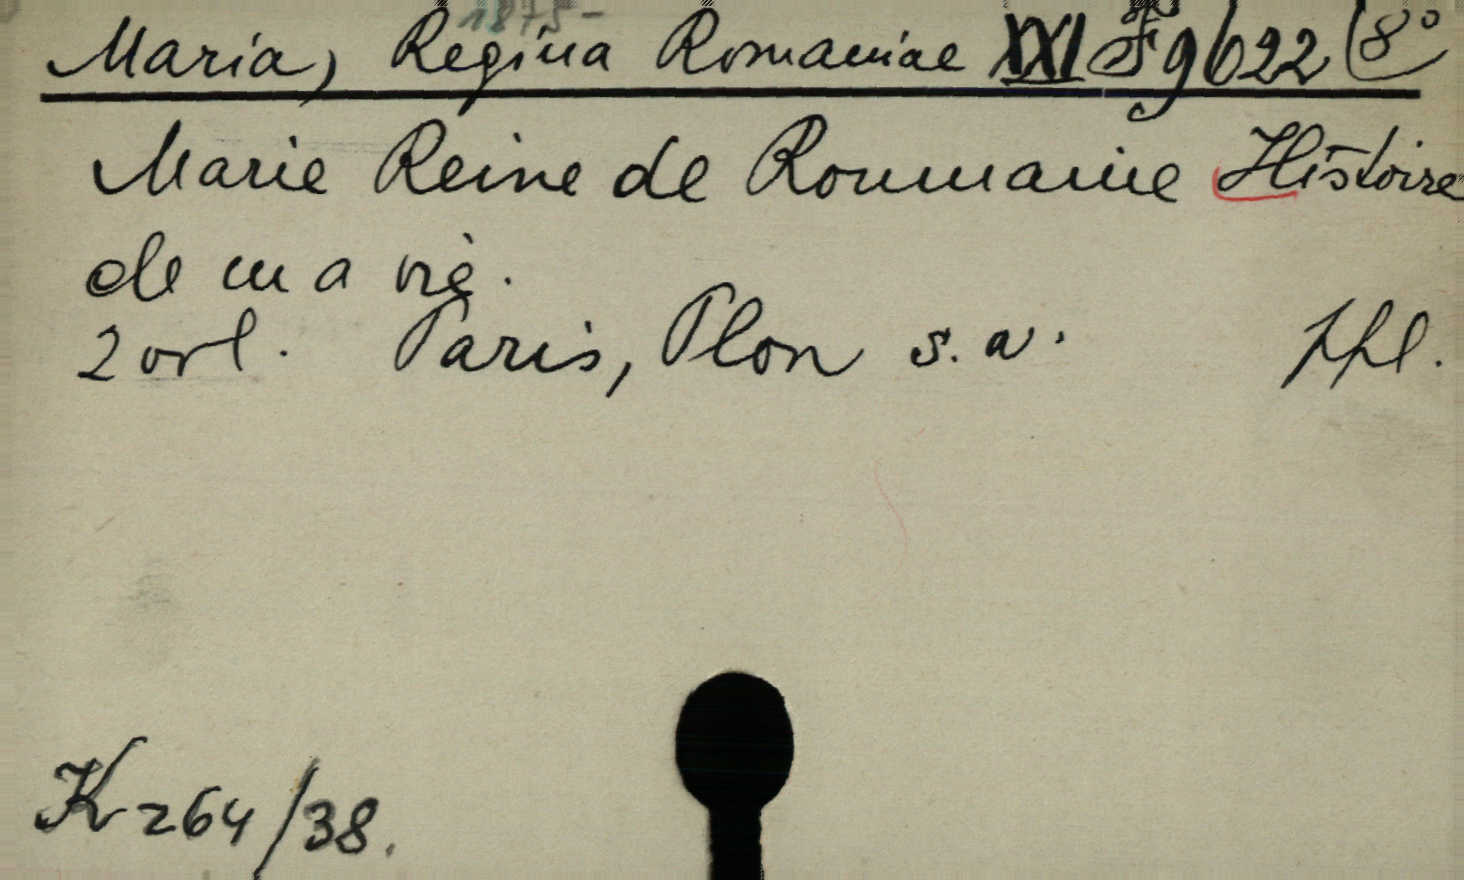 1875-
Maria, Regina Romaniae XXI Fg 622 (8°
Marie Reine de Roumanie Histoire
de ma vie.
2 vol. Paris, Plon s. a. ppl.
K 264/38.